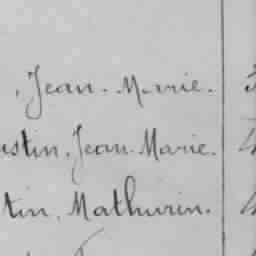 , Jean-Marie.
ustin, Jean-Marie.
tin, Mathurin.